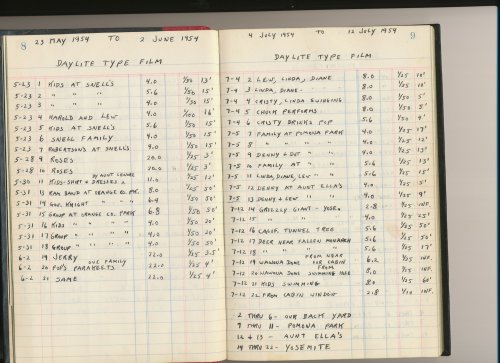 8 23 MAY 1954 TO 2 JUNE 1954
DAYLITE TYPE FILM
5-23 1 KIDS AT SNELL'S 4.0 1/50 13'
5-23 2 " " " 5.6 1/50 15'
5-23 3 " " " 4.0 1/50 15'
5-23 4 HAROLD AND LEW 4.0 1/100 16'
5-23 5 KIDS AT SNELL'S 5.6 1/50 15'
5-23 6 SNELL FAMILY 4.0 1/50 15'
5-23 7 ROBERTSONS AT SNELL'S 4.0 1/50 15'
5-28 9 ROSES 20.0 1/25 3'
5-28 10 ROSES 20.0 1/25 3'
BY AUNT LENORE
5-30 11 KIDS-SHIRT & DRESSES 11.0 1/25 12'
5-31 13 RAM BAND AT ORANGE CO. PK. 8.0 1/25 50'
5-31 14 GOV. KNIGHT " " 6.4 1/50 50'
5-31 15 GROUP AT ORANGE CO. PARK 6.8 1/50 50'
5-31 16 KIDS " " " " 4.0 1/50 20'
5-31 17 GROUP " " " " 4.0 1/50 20'
5-31 18 GROUP " " " " 4.0 1/50 50'
6-2 19 JERRY 22.0 1/25 3.5'
OUR FAMILY
6-2 20 POP'S PARAKEETS 22.0 1/25 4'
6-2 21 SAME 22.0 1/25 4'
4 JULY 1954 TO 12 JULY 1954 9
DAYLITE TYPE FILM
7-4 2 LEW, LINDA, DIANE 8.0 1/25 10'
7-4 3 LINDA, DIANE 8.0 1/25 8'
7-4 4 CRISTY, LINDA SWINGING 8.0 1/50 5'
7-4 5 CHUCK PERFORMS 8.0 1/50 5'
7-4 6 CRISTY DRINKS POP 5.6 1/50 4'
7-5 7 FAMILY AT POMONA PARK 4.0 1/25 17'
7-5 8 " " " " 4.0 1/25 12'
7-5 9 DENNY & DOT " " 4.0 1/25 13'
7-5 10 FAMILY AT " " 5.6 1/25 13'
7-5 11 LINDA, DIANE, LEW " " 5.6 1/25 15'
7-5 12 DENNY AT AUNT ELLA'S 4.0 1/25
7-5 13 DENNY & LEW " " 4.0 1/25 9'
7-12 14 GRIZZLY GIANT - YOSE. 2.8 1/25 INF.
7-12 15 " " " 4.0 1/25
7-12 16 CALIF. TUNNEL TREE 5.6 1/25 50'
7-12 17 DEER NEAR FALLEN MONARCH 5.6 1/25 50'
7-12 18 " " " " 5.6 1/25 17'
FROM NEAR
7-12 19 WAWONA DOME OUR CABIN 6.2 1/25 INF.
FROM
7-12 20 WAWONA DOME SWIMMING HOLE 8.0 1/25 INF.
7-12 21 KIDS SWIMMING 8.0 1/25 60'
7-12 22 FROM CABIN WINDOW 2.8 1/10 INF.
2 THRU 6 - OUR BACK YARD
7 THRU 11 - POMONA PARK
12 & 13 - AUNT ELLA'S
14 THRU 22 - YOSEMITE